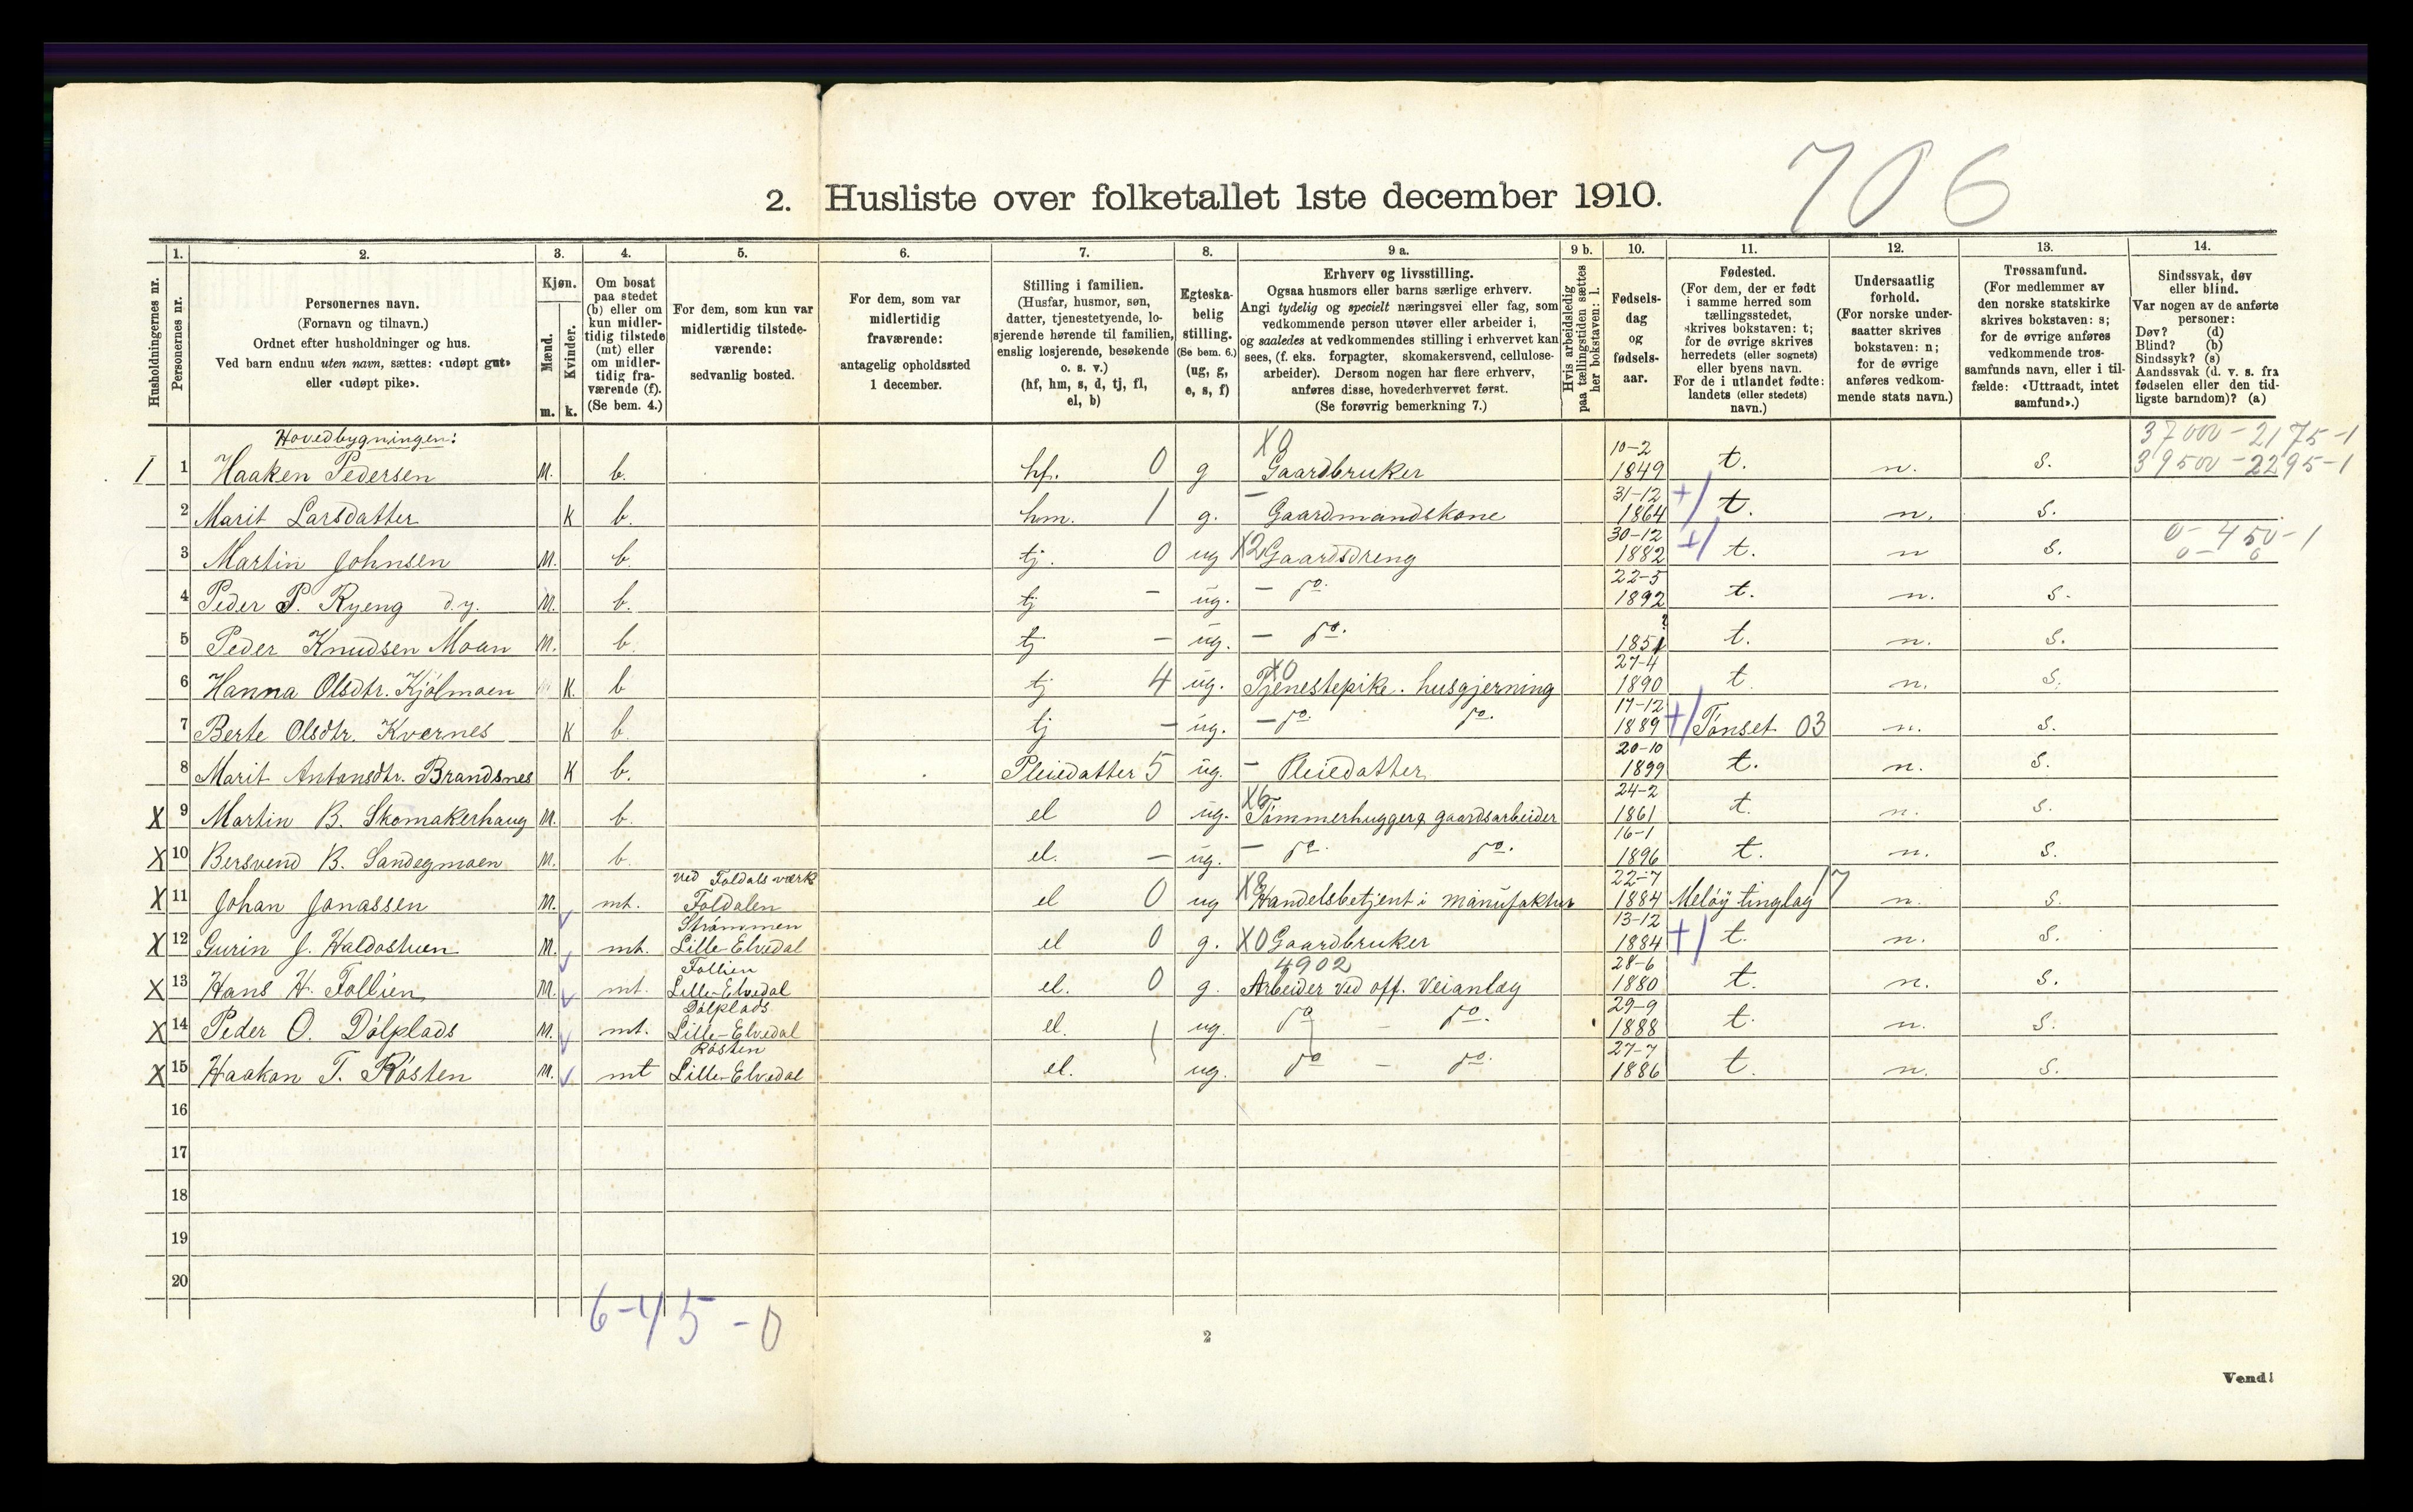 706
2. Husliste over folketallet 1ste december 1910.
1. 2. 3. 4. 5. 6. 7. 8. 9 a. 9 b. 10. 11. 12. 13. 14.
Husholdningernes nr.
Personernes nr.
Personernes navn.
(Fornavn og tilnavn.)
Ordnet efter husholdninger og hus.
Ved barn endnu uten navn, sættes: «udøpt gut»
eller «udøpt pike».
Kjøn.
Mænd.
Kvinder.
m. k.
Om bosat
paa stedet
(b) eller om
kun midler-
tidig tilstede
(mt) eller
om midler-
tidig fra-
værende (f).
(Se bem. 4.)
For dem, som kun var
midlertidig tilstede-
værende:
sedvanlig bosted.
For dem, som var
midlertidig
fraværende:
antagelig opholdssted
1 december.
Stilling i familien.
(Husfar, husmor, søn,
datter, tjenestetyende, lo-
sjerende hørende til familien,
enslig losjerende, besøkende
o. s. v.)
(hf, hm, s, d, tj, fl,
el, b)
Egteska-
belig
stilling.
(Se bem. 6.)
(ug, g,
e, s, f)
Erhverv og livsstilling.
Ogsaa husmors eller barns særlige erhverv.
Angi tydelig og specielt næringsvei eller fag, som
vedkommende person utøver eller arbeider i,
og saaledes at vedkommendes stilling i erhvervet kan
sees, (f. eks. forpagter, skomakersvend, cellulose-
arbeider). Dersom nogen har flere erhverv,
anføres disse, hovederhvervet først.
(Se forøvrig bemerkning 7.)
Hvis arbeidsledig
paa tællingstiden sættes
her bokstaven: l.
Fødsels-
dag
og
fødsels-
aar.
Fødested.
(For dem, der er født
i samme herred som
tællingsstedet,
skrives bokstaven: t;
for de øvrige skrives
herredets (eller sognets)
eller byens navn.
For de i utlandet fødte:
landets (eller stedets)
navn.)
Undersaatlig
forhold.
(For norske under-
saatter skrives
bokstaven: n;
for de øvrige
anføres vedkom-
mende stats navn.)
Trossamfund.
(For medlemmer av
den norske statskirke
skrives bokstaven: s;
for de øvrige anføres
vedkommende tros-
samfunds navn, eller i til-
fælde: «Uttraadt, intet
samfund».)
Sindssvak, døv
eller blind.
Var nogen av de anførte
personer:
Døv? (d)
Blind? (b)
Sindssyk? (s)
Aandssvak (d. v. s. fra
fødselen eller den tid-
ligste barndom)? (a)
Hovedbygningen:
37000-2175-1
1 1 Haaken Pedersen M. b. hf. 0 g X0 Gaardbruker 10-2 1849 t. n. s. 39500-2295-1
2 Marit Larsdatter K b. hm. 1 g. — Gaardmandskone 31-12 1864 +/ t. n. s.
3 Martin Johnsen M. b. tj. 0 ug X2 Gaardsdreng 30-12 1882 +/ t. n s. 0-450-1
4 Peder P. Ryeng d.y. M. b. tj — ug. — do. 22-5 1892 t. n. s.
5 Peder Knudsen Moan M. b. tj — ug. — do. ? 1851 t. n. s.
6 Hanna Olsdtr. Kjölmoen K. b tj 4 ug. X0 Tjenestepike. husgjerning 27-4 1890 t n. s.
7 Berte Olsdtr. Kvernes K b. tj — ug. — do. do. 17-12 1889 +/ Tönset 03 n. s.
8 Marit Antonsdtr. Brandsnes K b. Pleiedatter 5 ug. — Pleiedatter 20-10 1899 t. n. s.
X 9 Martin B. Skomakerhaug M. b. el 0 ug. X6 Tömmerhugger & gaardsarbeider 24-2 1861 t. n. s.
X 10 Bersvend B. Sandegmoen M. b. el. — ug. — do. do. 16-1 1896 t. n. s.
X 11 Johan Janassen M. mt. ved Foldals værk Foldalen el 0 ug X8 Handelsbetjent i manufaktur 22-7 1884 Melöy tinglag 17 n. s.
X 12 Gurin J. Haldostuen M. mt. Strömmen Lille-Elvedal el 0 g. X0 Gaardbruker 13-12 1884 +/ t. n. s.
X 13 Hans H. Follien M. mt. Follien Lille-Elvedal el. 0 g. 4902 Arbeider ved off. Veianlæg 28-6 1880 t. n. s.
X 14 Peder O. Dölplads M. mt. Dölplads Lille-Elvedal el. ug. do — do. 29-9 1888 t. n. s.
X 15 Haakon T. Rösten M. mt Rösten Lille-Elvedal el. ug. do — do. 27-7 1886 t. n. s.
16
17
18
19
20
6-45-0
2
Vend!